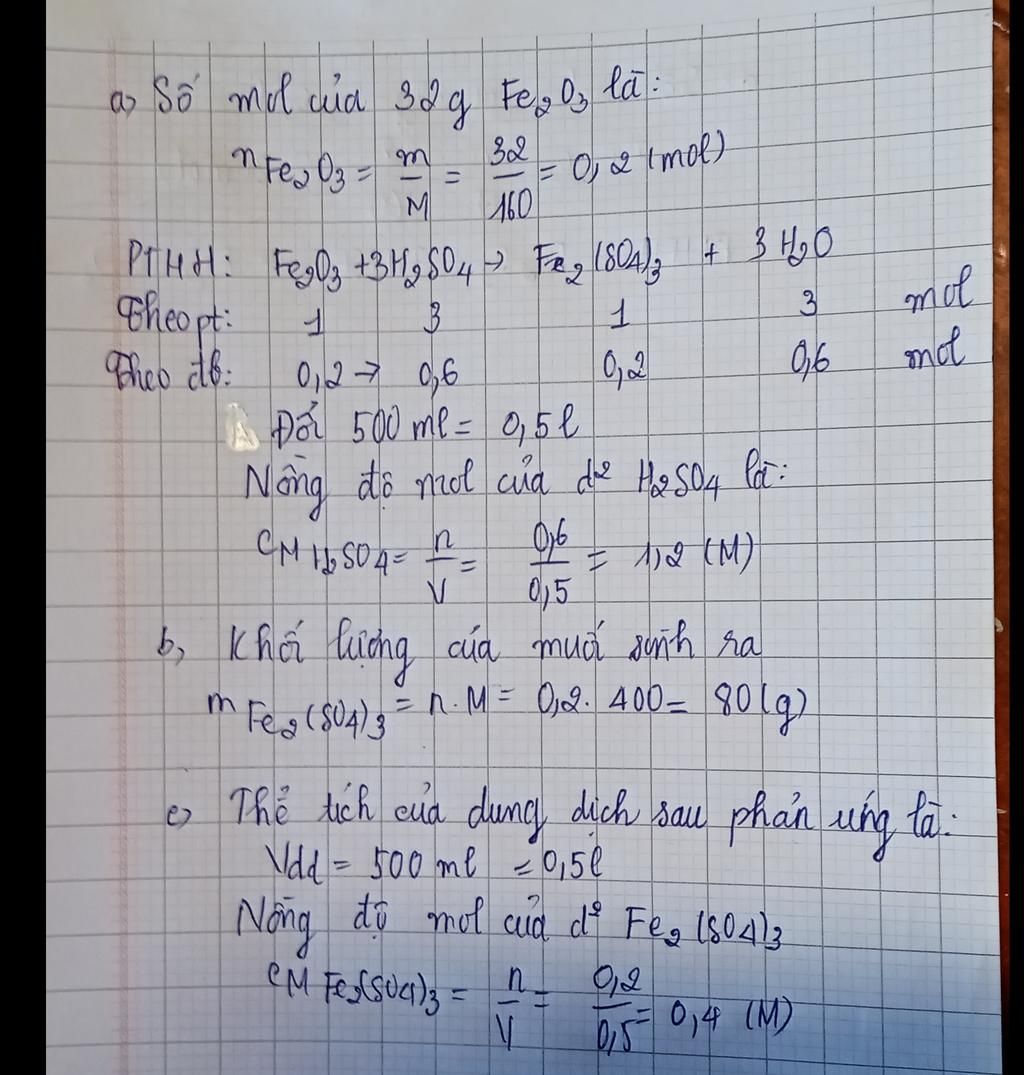 a, Số mol của 32g Fe₂O₃ là:
nFe₂O₃ = m/M = 32/160 = 0,2 (mol)
PTHH: Fe₂O₃ + 3H₂SO₄ → Fe₂(SO₄)₃ + 3H₂O
Theo pt: 1 3 1 3 mol
Theo đb: 0,2 → 0,6 0,2 0,6 mol
Đổi 500 ml = 0,5 l
Nồng độ mol của d² H₂SO₄ là:
CM H₂SO₄ = n/V = 0,6/0,5 = 1,2 (M)
b, Khối lượng của muối sinh ra
mFe₂(SO₄)₃ = n.M = 0,2. 400 = 80 (g)
c, Thể tích của dung dịch sau phản ứng là:
Vdd = 500 ml = 0,5l
Nồng độ mol của d² Fe₂(SO₄)₃
CM Fe₂(SO₄)₃ = n/V = 0,2/0,5 = 0,4 (M)